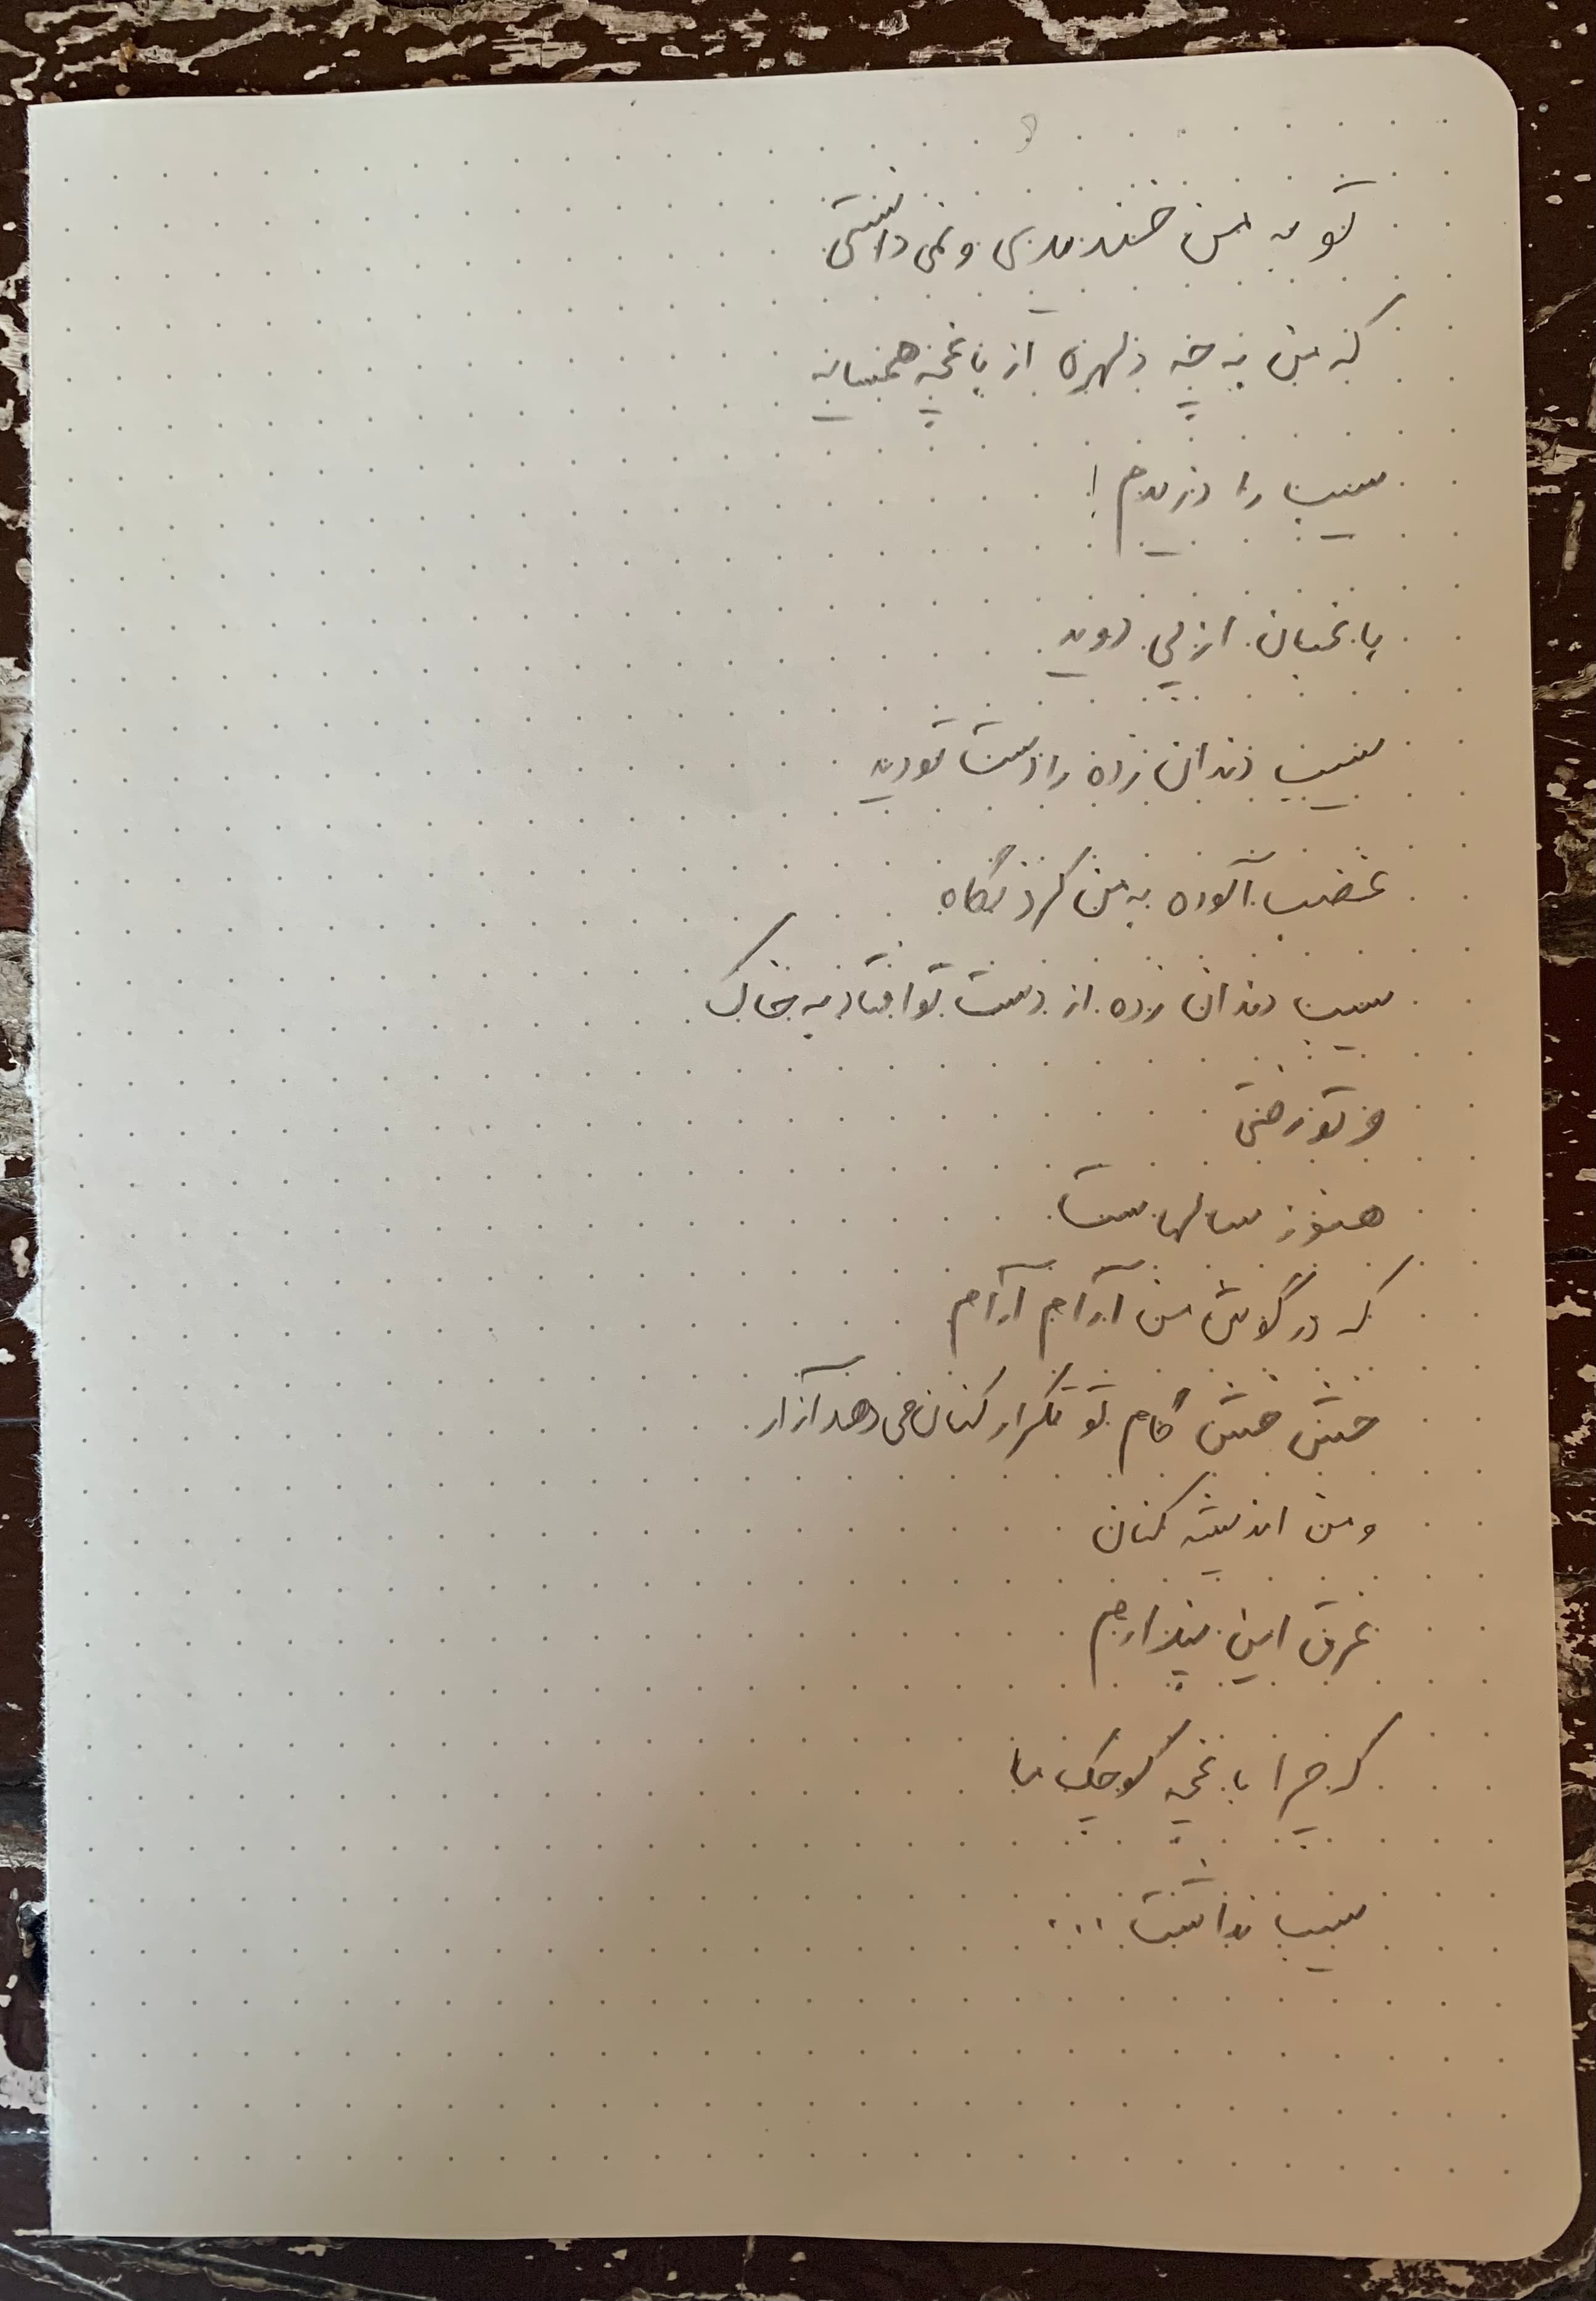 تو به من خندیدی و نمی دانستی
که من به چه دلهره از باغچه همسایه
سیب را دزدیدم !
باغبان از پی دوید
سیب دندان زده را دست تو دید
غضب آلوده به من کرد نگاه
سیب دندان زده از دست تو افتاد به خاک
و تو رفتی
هنوز سالهاست
که در گوش من آرام آرام
خش خش گام تو تکرار کنان می دهد آزار
و من اندیشه کنان
غرق این پندارم
که چرا باغچه کوچک ما
سیب نداشت ...